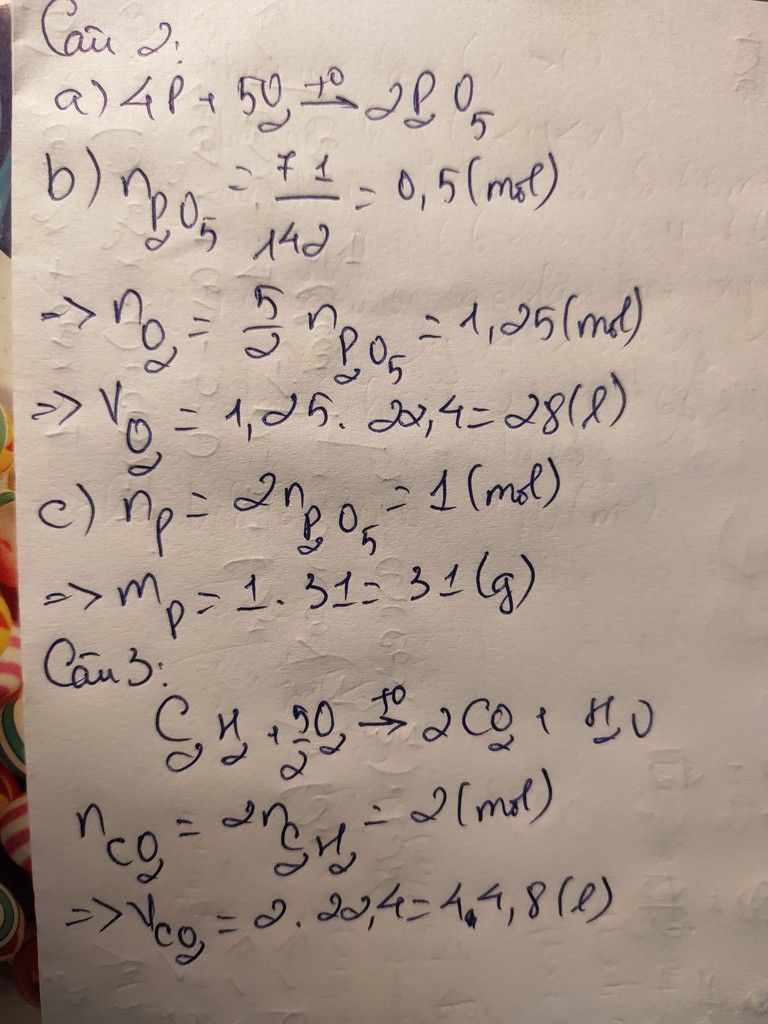 Câu 2:
a) 4P + 5O₂ t⁰→ 2P₂O₅
b) n P₂O₅ = 71/142 = 0,5 (mol)
=> n O₂ = 5/2 n P₂O₅ = 1,25 (mol)
=> V O₂ = 1,25. 22,4 = 28 (l)
c) n P = 2n P₂O₅ = 1 (mol)
=> m P = 1. 31 = 31 (g)
Câu 3:
C₂H₂ + 5/2O₂ t⁰→ 2CO₂ + H₂O
n CO₂ = 2n C₂H₂ = 2 (mol)
=> V CO₂ = 2. 22,4 = 44,8 (l)